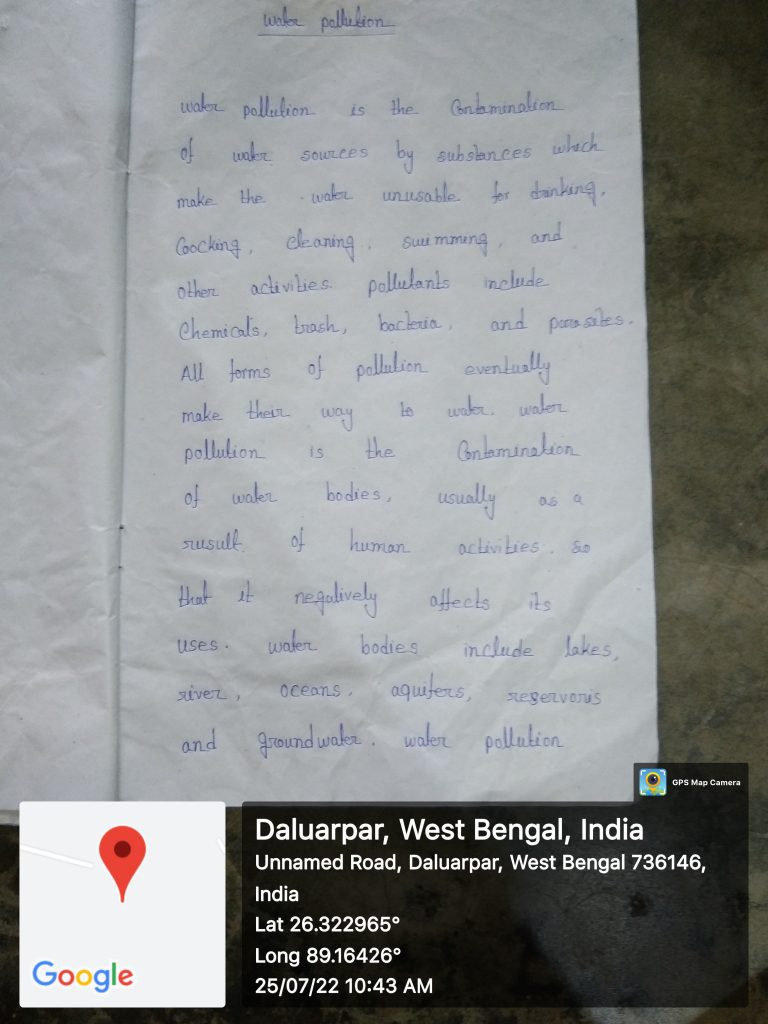 water pollution
water pollution is the Contamination
of water sources by substances which
make the water unusable for drinking,
Coocking, cleaning, swimming, and
other activities. pollutants include
Chemicals, trash, bacteria, and parasites.
All forms of pollution eventually
make their way to water. water
pollution is the Contamination
of water bodies, usually as a
rusult of human activities. so
that it negatively affects its
uses. water bodies include lakes,
river, oceans, aquifers, reservoris
and groundwater. water pollution
GPS Map Camera
Daluarpar, West Bengal, India
Unnamed Road, Daluarpar, West Bengal 736146,
India
Lat 26.322965°
Long 89.16426°
25/07/22 10:43 AM
Google